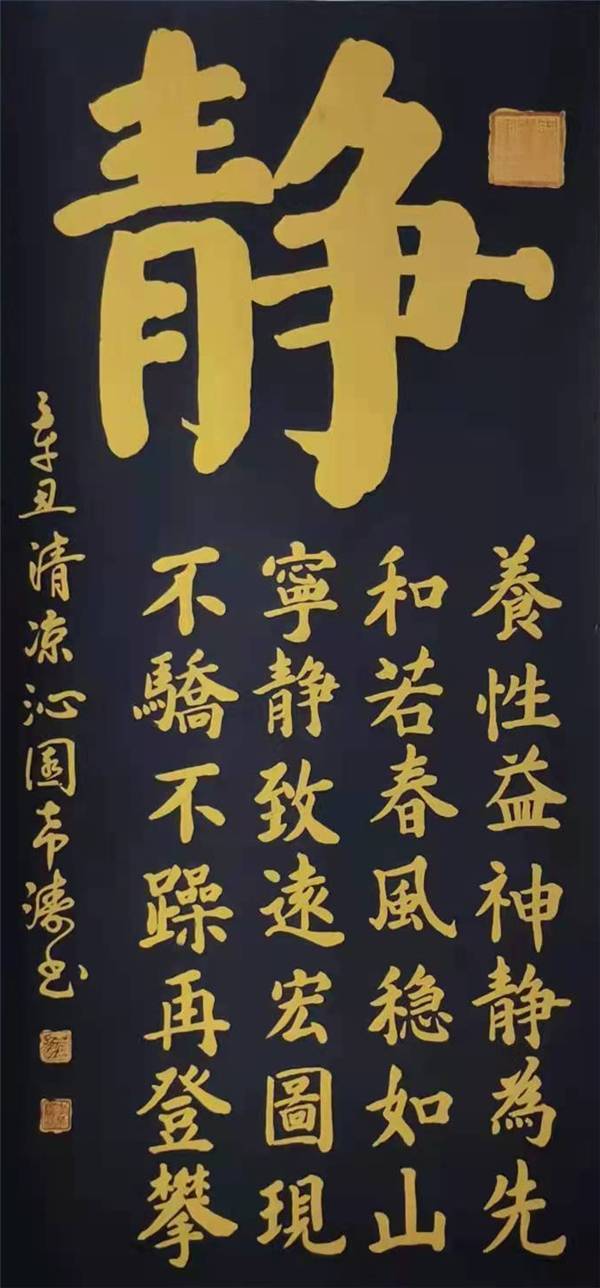 静
養性益神静為先
和若春風穏如山
寧静致遠宏圖現
不驕不躁再登攀
辛丑清凉沁園韦濤书